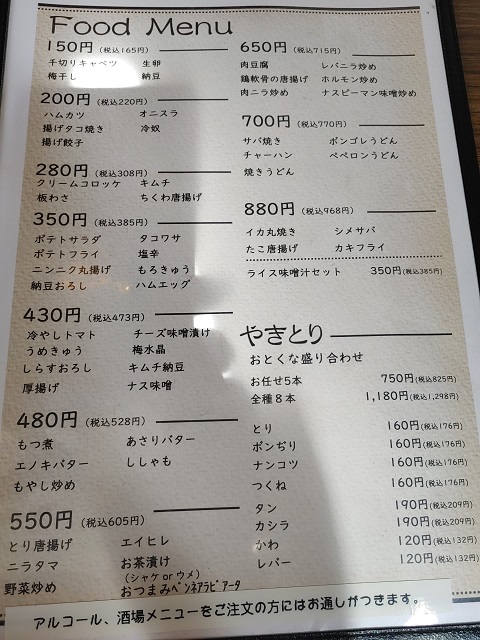 Food Menu
150円(税込165円)
千切りキャベツ 生卵
梅干し 納豆
200円(税込220円)
ハムカツ オニスラ
揚げタコ焼き 冷奴
揚げ餃子
280円(税込308円)
クリームコロッケ キムチ
板わさ ちくわ唐揚げ
350円(税込385円)
ポテトサラダ タコワサ
ポテトフライ 塩辛
ニンニク丸揚げ もろきゅう
納豆おろし ハムエッグ
430円(税込473円)
冷やしトマト チーズ味噌漬け
うめきゅう 梅水晶
しらすおろし キムチ納豆
厚揚げ ナス味噌
480円(税込528円)
もつ煮 あさりバター
エノキバター ししゃも
もやし炒め
550円(税込605円)
とり唐揚げ エイヒレ
ニラタマ お茶漬け
(シャケorウメ)
野菜炒め おつまみペンネアラビアータ
650円(税込715円)
肉豆腐 レバニラ炒め
鶏軟骨の唐揚げ ホルモン炒め
肉ニラ炒め ナスピーマン味噌炒め
700円(税込770円)
サバ焼き ボンゴレうどん
チャーハン ペペロンうどん
焼きうどん
880円(税込968円)
イカ丸焼き シメサバ
たこ唐揚げ カキフライ
ライス味噌汁セット 350円(税込385円)
やきとり
おとくな盛り合わせ
お任せ5本 750円(税込825円)
全種8本 1,180円(税込1,298円)
とり 160円(税込176円)
ボンぢり 160円(税込176円)
ナンコツ 160円(税込176円)
つくね 160円(税込176円)
タン 190円(税込209円)
カシラ 190円(税込209円)
かわ 120円(税込132円)
レバー 120円(税込132円)
アルコール、酒場メニューをご注文の方にはお通しがつきます。